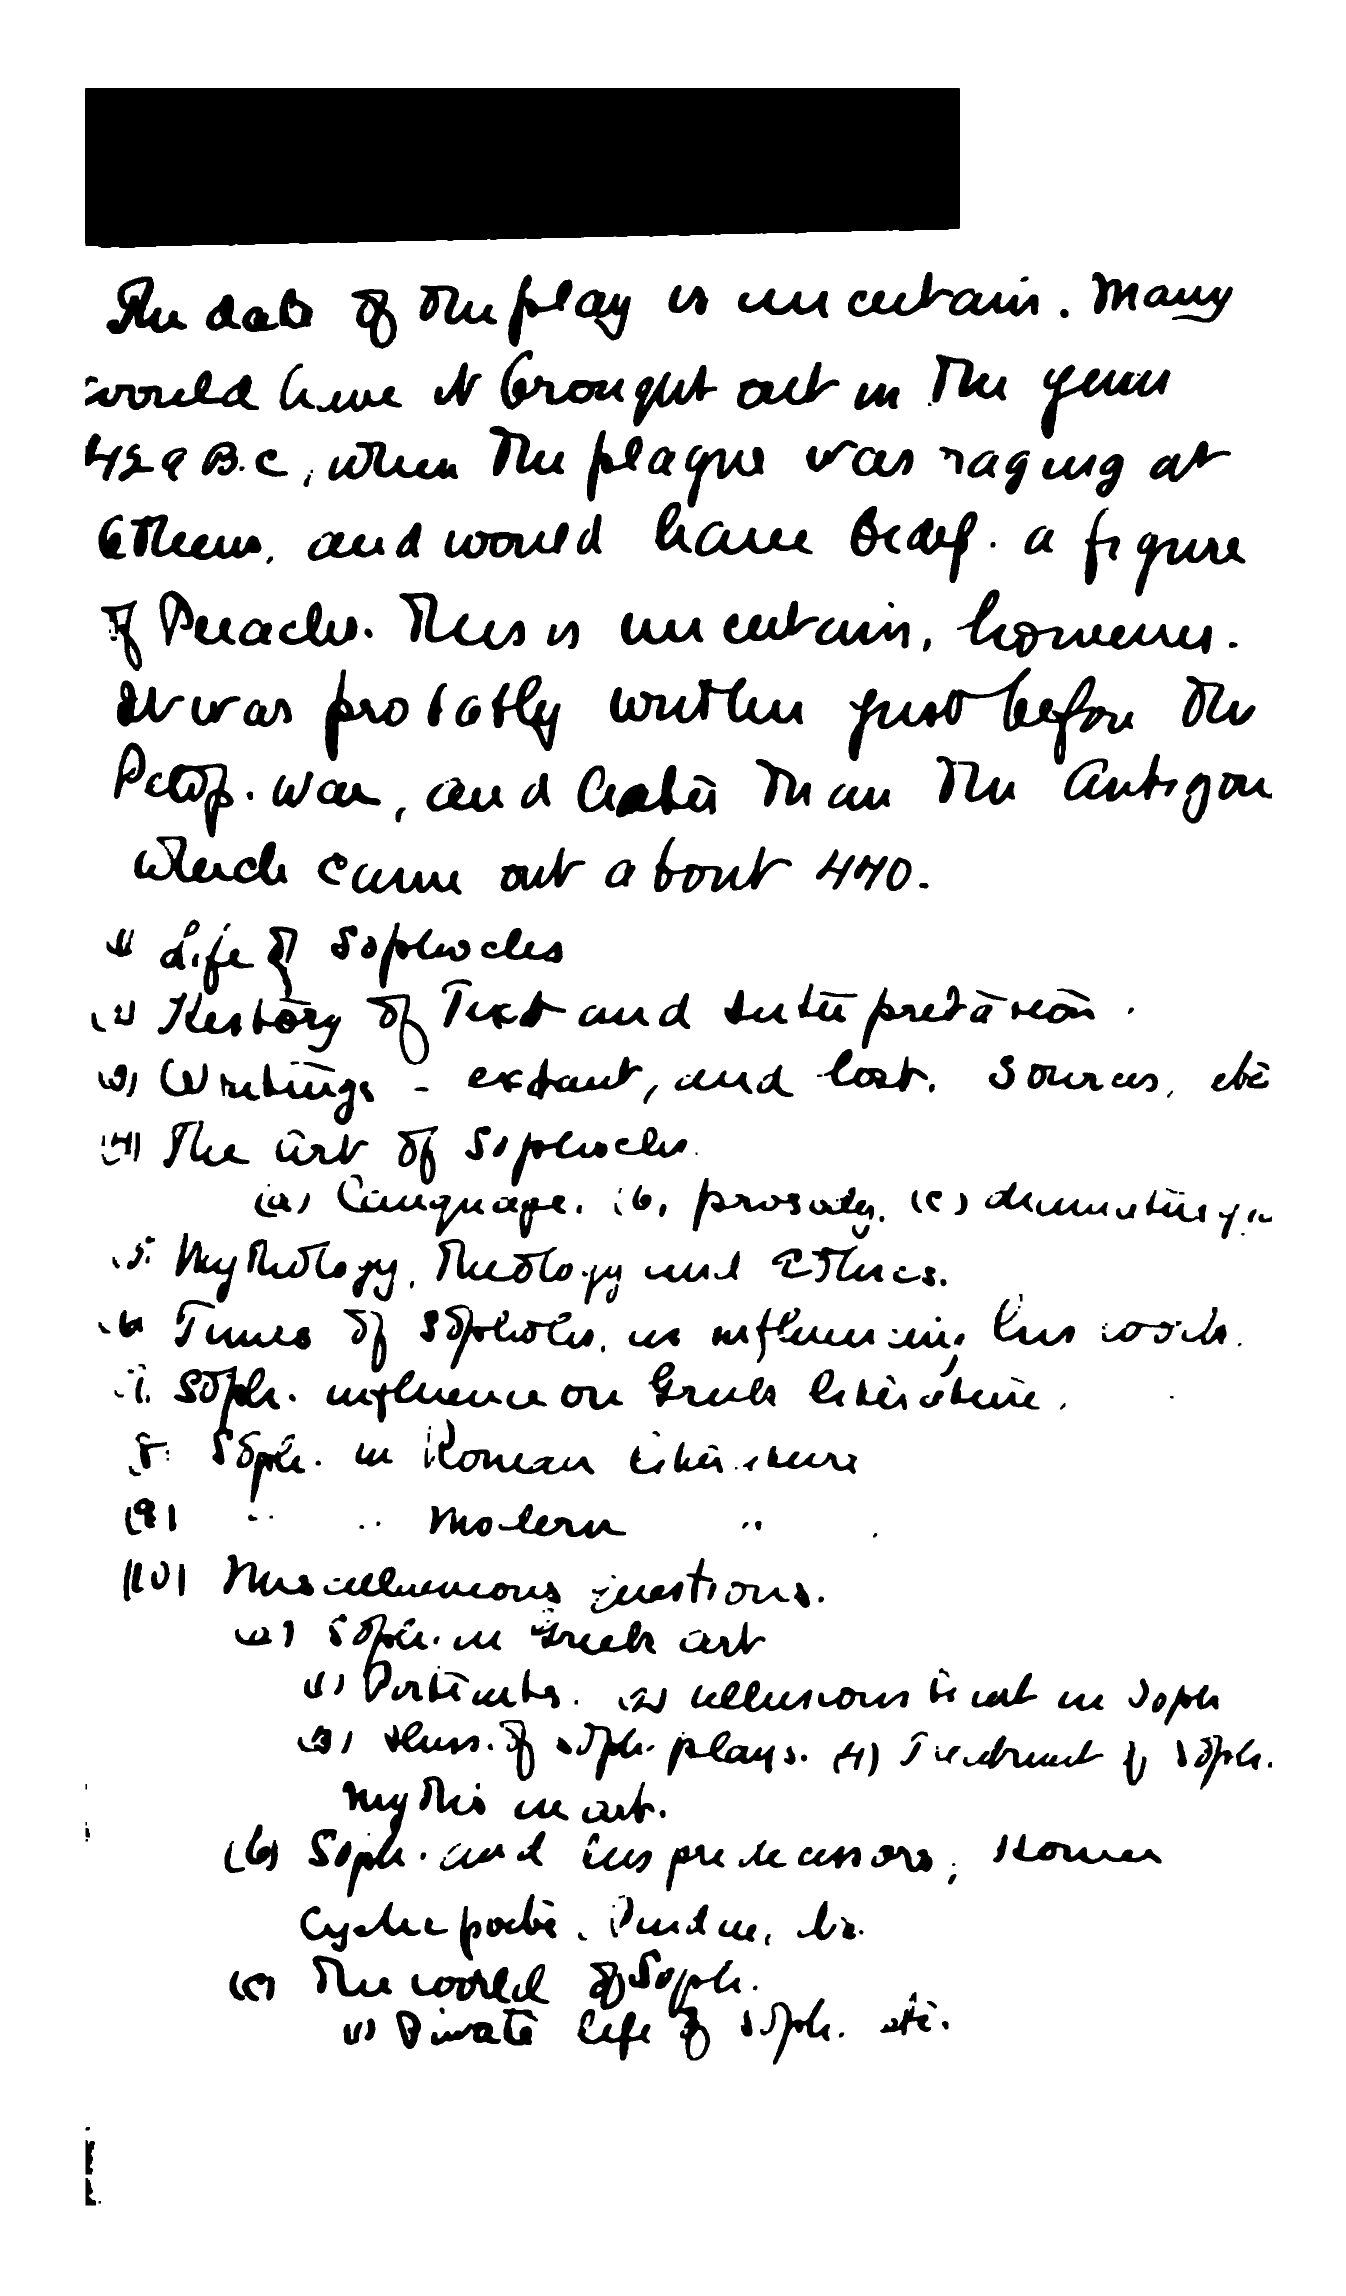 The date of the play is uncertain. Many
would have it brought out in the year
429 B.C, when the plague was raging at
Athens, and would have Oedip. a figure
of Pericles. This is uncertain, however.
It was probably written just before the
Pelop. war, and later than the Antigon
which came out about 440.
(1) Life of Sophocles
(2) History of Text and Interpretation.
(3) Writings - extant, and lost. Sources, etc
(4) The art of Sophocles.
(a) Language. (b) prosody. (c)
5. Mythology, Theology and Ethics.
6. Times of Sophocles, as influencing his work.
7. Soph. influence on Greek literature.
8. Soph. in Roman literature
(9) " " Modern "
(10) Miscellaneous questions.
(a) Soph. in Greek art
(1) Portraits. (2) allusions to art in Soph
(3) Illus. of Soph. plays. (4) Treatment of Soph.
myths in art.
(b) Soph. and his predecessors, Homer
Cyclic poets, Pindar,
(c) The world of Soph.
(1) Private life of Soph. etc.